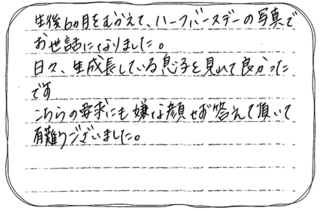 生後6ヵ月をむかえて、ハーフバースデーの写真で
お世話になりました。
日々、生成長している息子を見れて良かった
です
こちらの要求にも嫌な顔せず答えて頂いて
有難うございました。